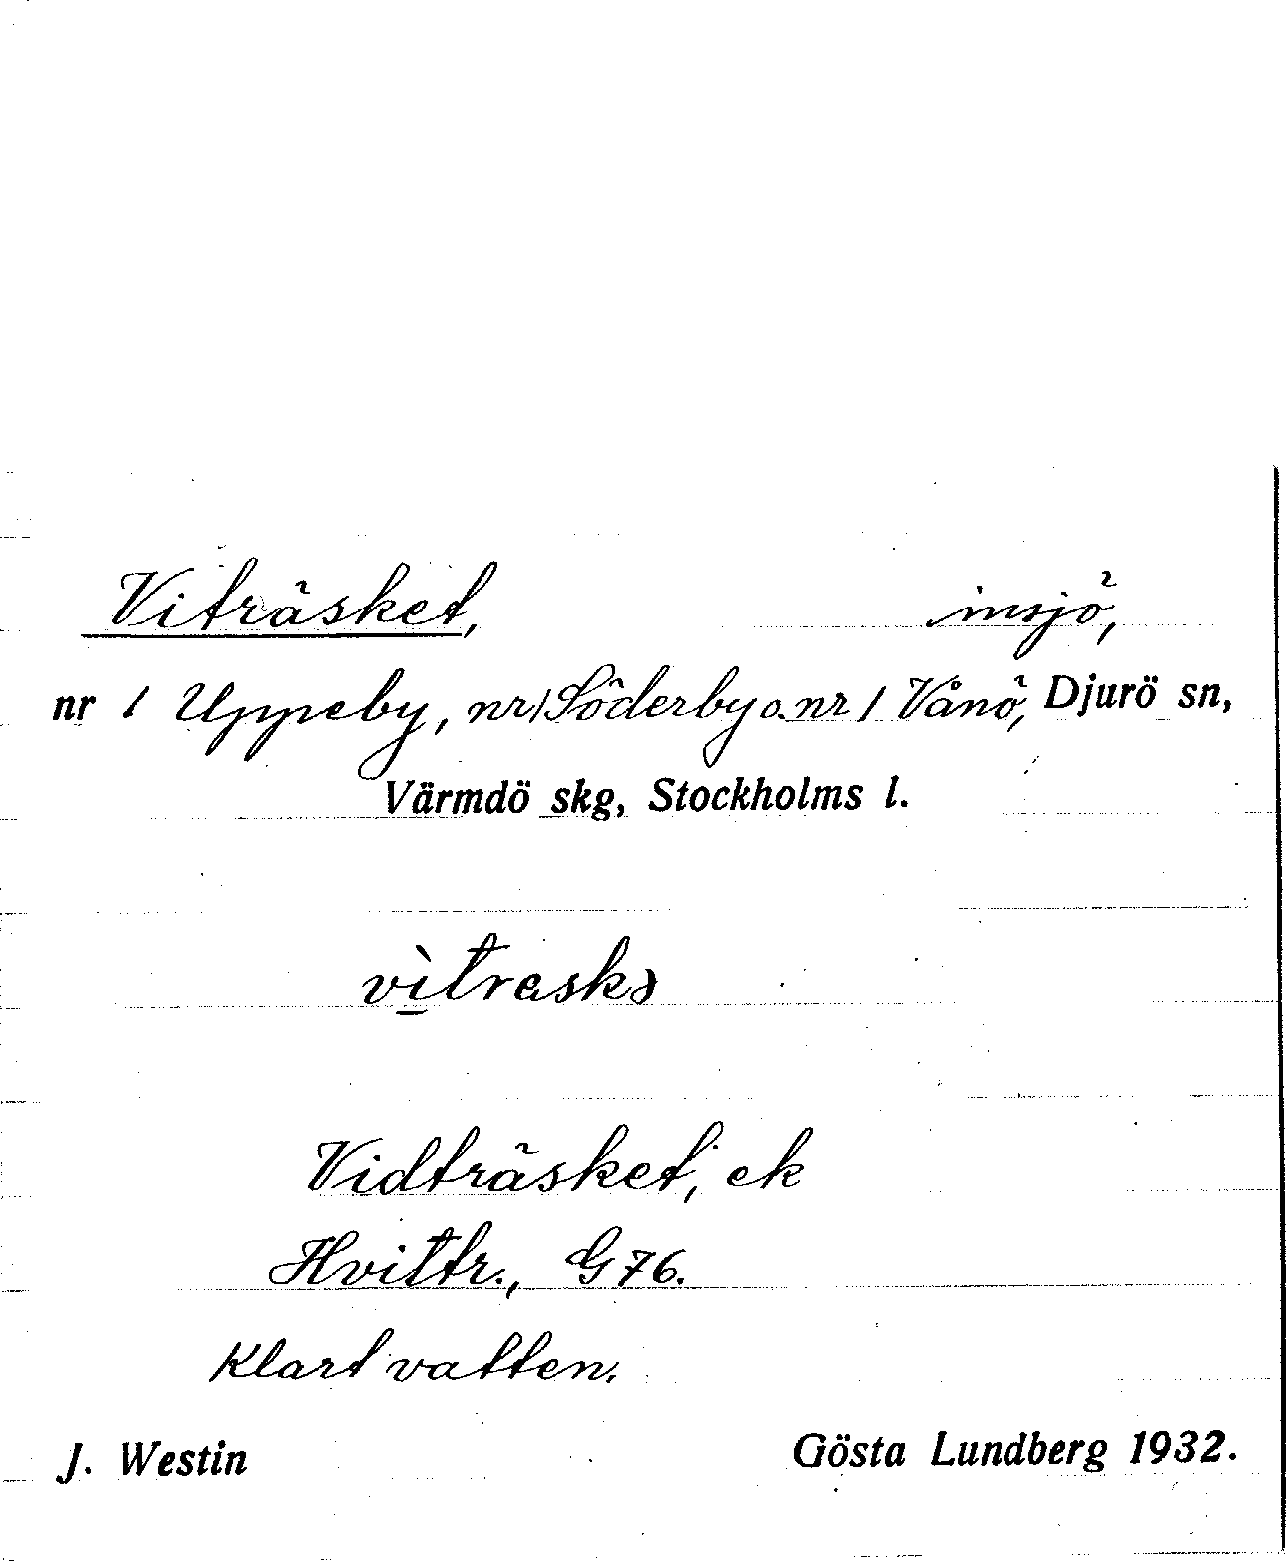 Viträsket, insjö,
nr 1 Uppeby, nr 1 Söderby o. nr 1 Vånö, Djurö sn,
Värmdö skg, Stockholms l.
vìtrasks
Vidträsket, ek
Hvittr., G 76.
Klart vatten.
J. Westin Gösta Lundberg 1932.